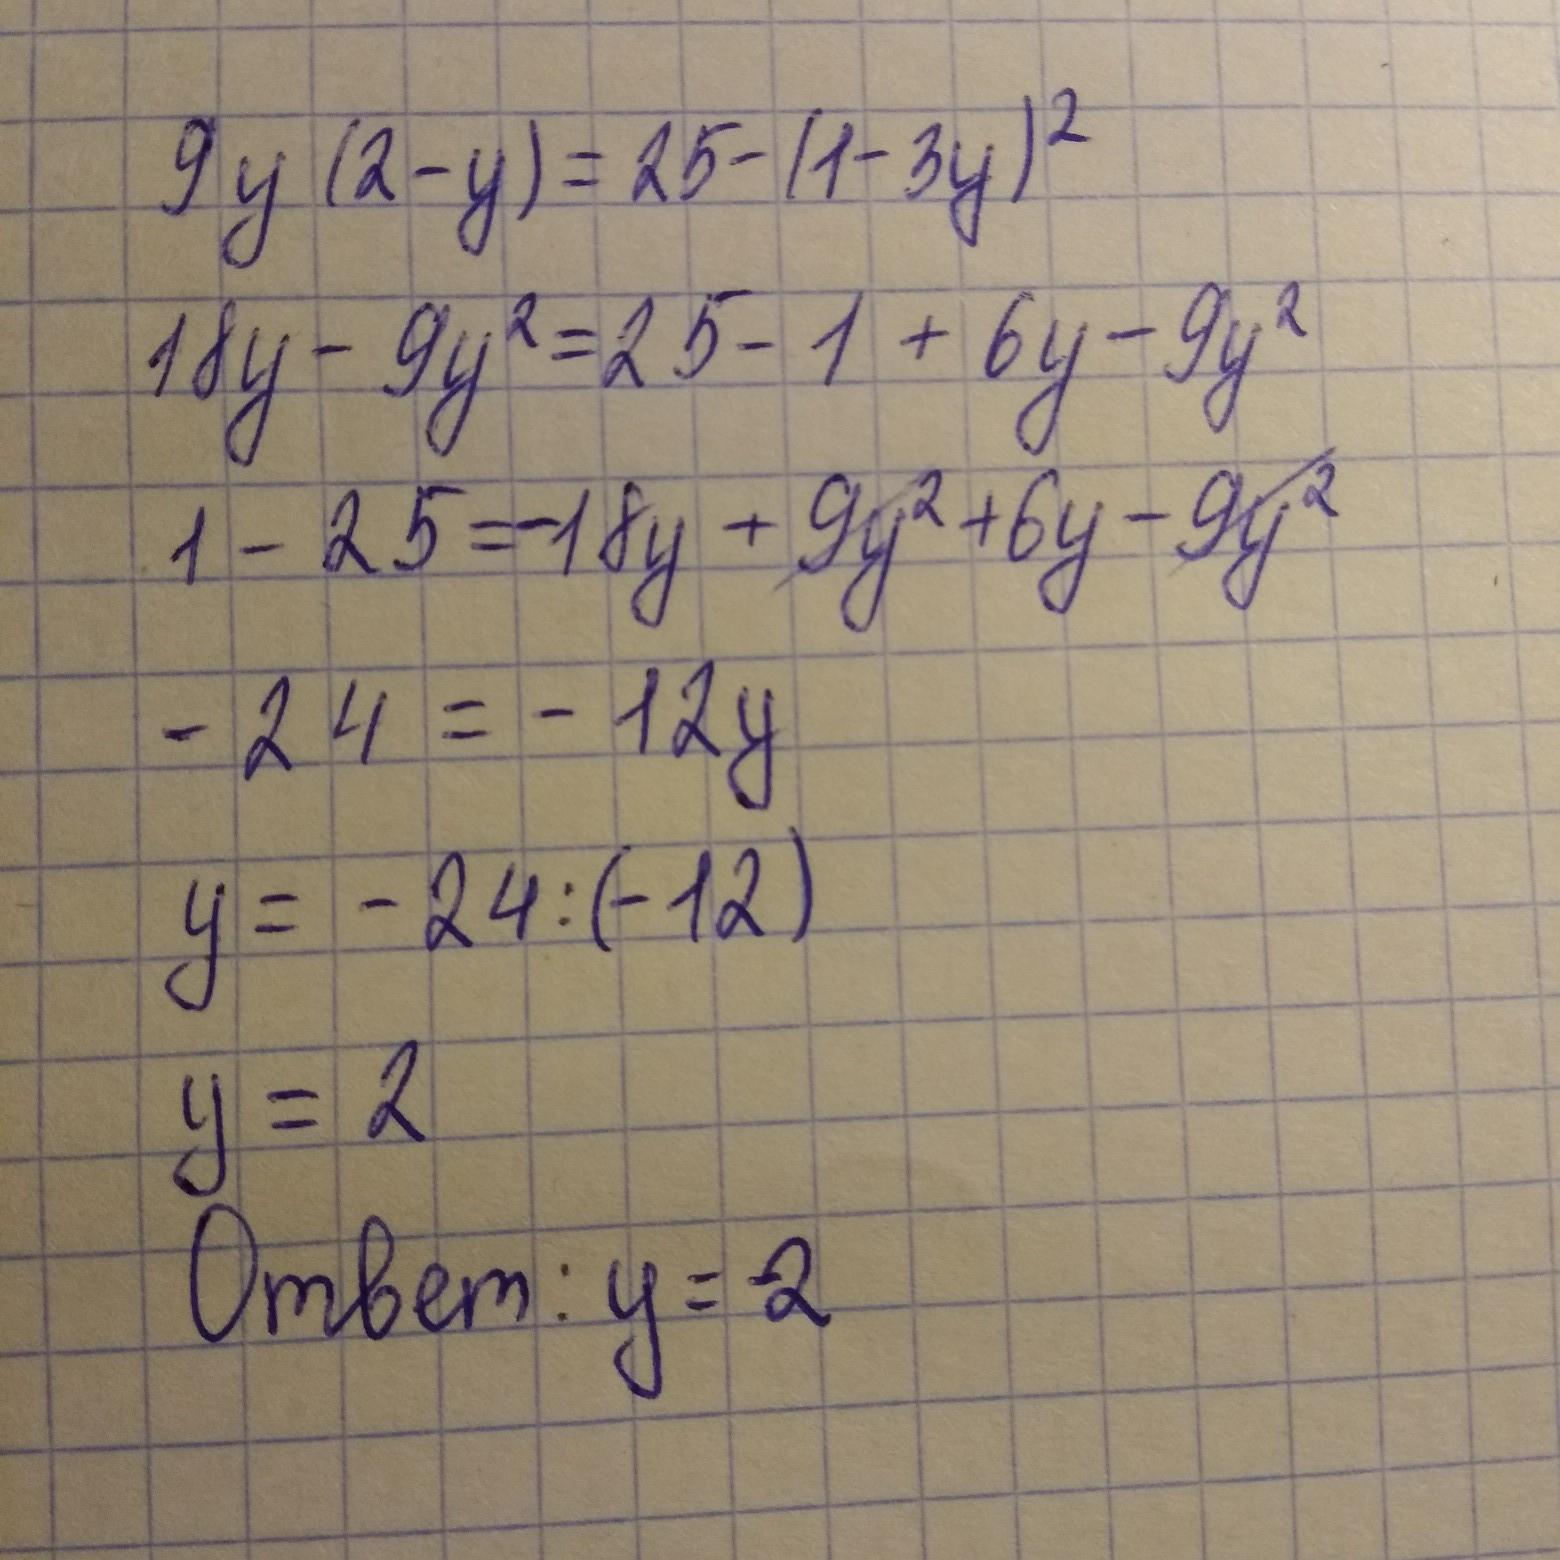 9y (2-y) = 25 - (1 - 3y)²
18y - 9y² = 25 - 1 + 6y - 9y²
1 - 25 = -18y + 9y² + 6y - 9y²
-24 = -12y
y = -24 : (-12)
y = 2
Ответ: y = 2